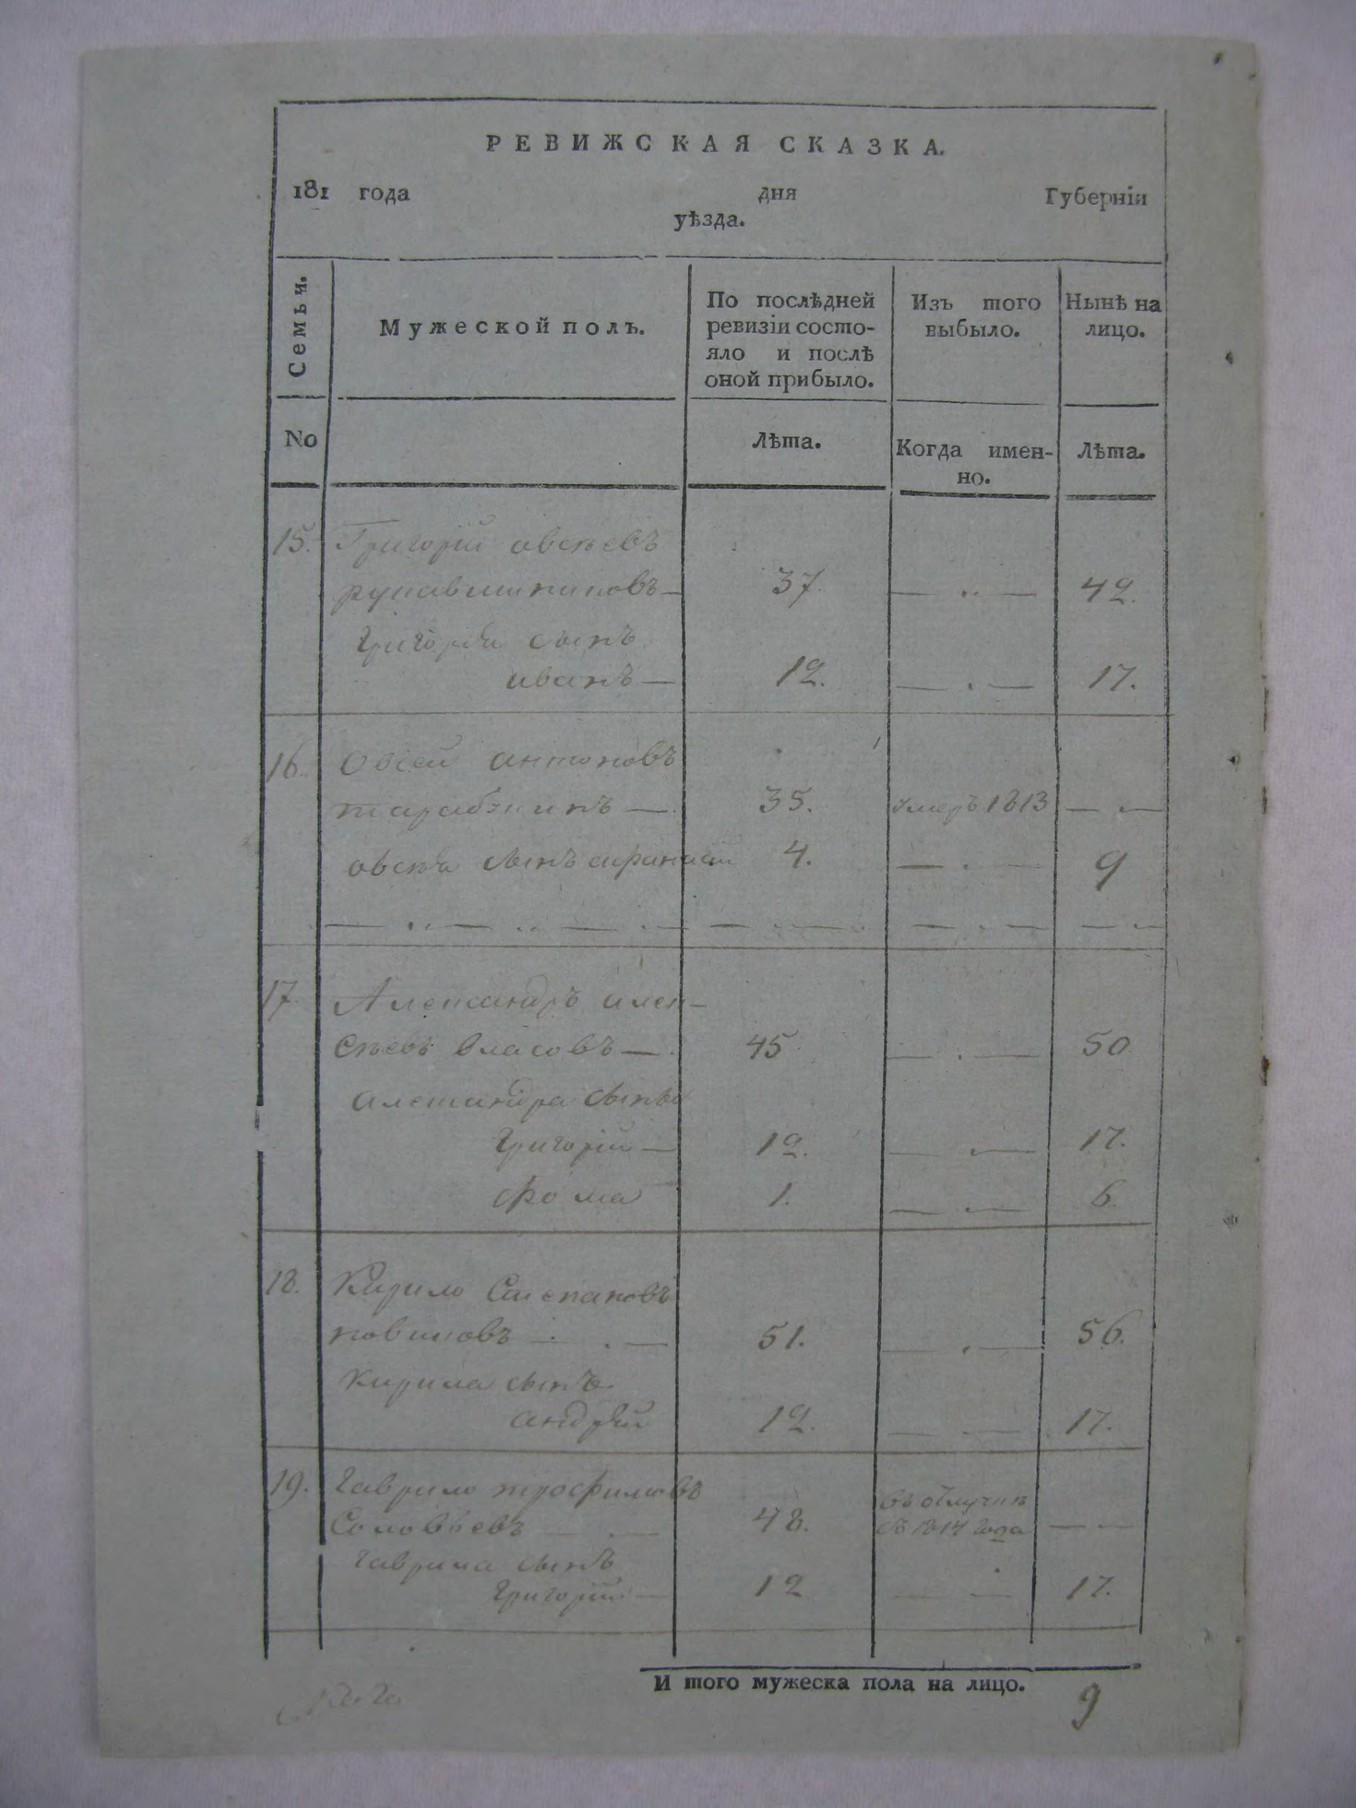 РЕВИЖСКАЯ СКАЗКА.
181 года дня Губерніи
уѣзда.
Семьи. Мужеской полъ. По послѣдней ревизіи состо- яло и послѣ оной прибыло. Изъ того выбыло. Нынѣ на лицо.
No Лѣта. Когда имен- но. Лѣта.
15. Григорій овсѣевъ
рукавишниковъ — 37. — „ — 42.
Григорья сынъ
иванъ — 12. — . — 17.
16. Овсей антоновъ
— 35. умеръ 1813 — —
овсѣя сынъ афанасий 4. — . — 9
17. Александръ алек-
сѣевъ власовъ — 45 — . — 50
александра сынья
Григорій — 12. — . — 17.
фома 1. — . — 6
18. Кирило Степановъ
новиковъ — . — 51. — . — 56.
Кирила сынъ
андрѣй 12. — — 17.
19. Гаврило трофимовъ въ отлучкѣ
Соловьевъ — — 48. съ 1814 года — —
Гаврила сынъ
Григорій — 12 — — 17.
И того мужеска пола на лицо. 9